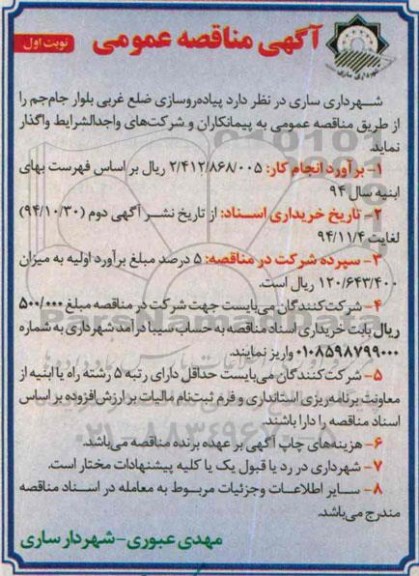 آگهی مناقصه عمومی
نوبت اول
شهرداری ساری
شهرداری ساری در نظر دارد پیاده‌روسازی ضلع غربی بلوار جام‌جم را
از طریق مناقصه عمومی به پیمانکاران و شرکت‌های واجدالشرایط واگذار
نماید.
۱- برآورد انجام کار: ۲/۴۱۲/۸۶۸/۰۰۵ ریال بر اساس فهرست بهای
ابنیه سال ۹۴
۲- تاریخ خریداری اسناد: از تاریخ نشر آگهی دوم (۹۴/۱۰/۳۰)
لغایت ۹۴/۱۱/۴
۳- سپرده شرکت در مناقصه: ۵ درصد مبلغ برآورد اولیه به میزان
۱۲۰/۶۴۳/۴۰۰ ریال است.
۴- شرکت‌کنندگان می‌بایست جهت شرکت در مناقصه مبلغ ۵۰۰/۰۰۰
ریال بابت خریداری اسناد مناقصه به حساب سیبا درآمد شهرداری به شماره
۰۱۰۸۵۹۸۷۹۹۰۰۰ واریز نمایند.
۵- شرکت‌کنندگان می‌بایست حداقل دارای رتبه ۵ رشته راه یا ابنیه از
معاونت برنامه‌ریزی استانداری و فرم ثبت‌نام مالیات بر ارزش افزوده بر اساس
اسناد مناقصه را دارا باشند.
۶- هزینه‌های چاپ آگهی بر عهده برنده مناقصه می‌باشد.
۷- شهرداری در رد یا قبول یک یا کلیه پیشنهادات مختار است.
۸- سایر اطلاعات و جزئیات مربوط به معامله در اسناد مناقصه
مندرج می‌باشد.
مهدی عبوری - شهردار ساری